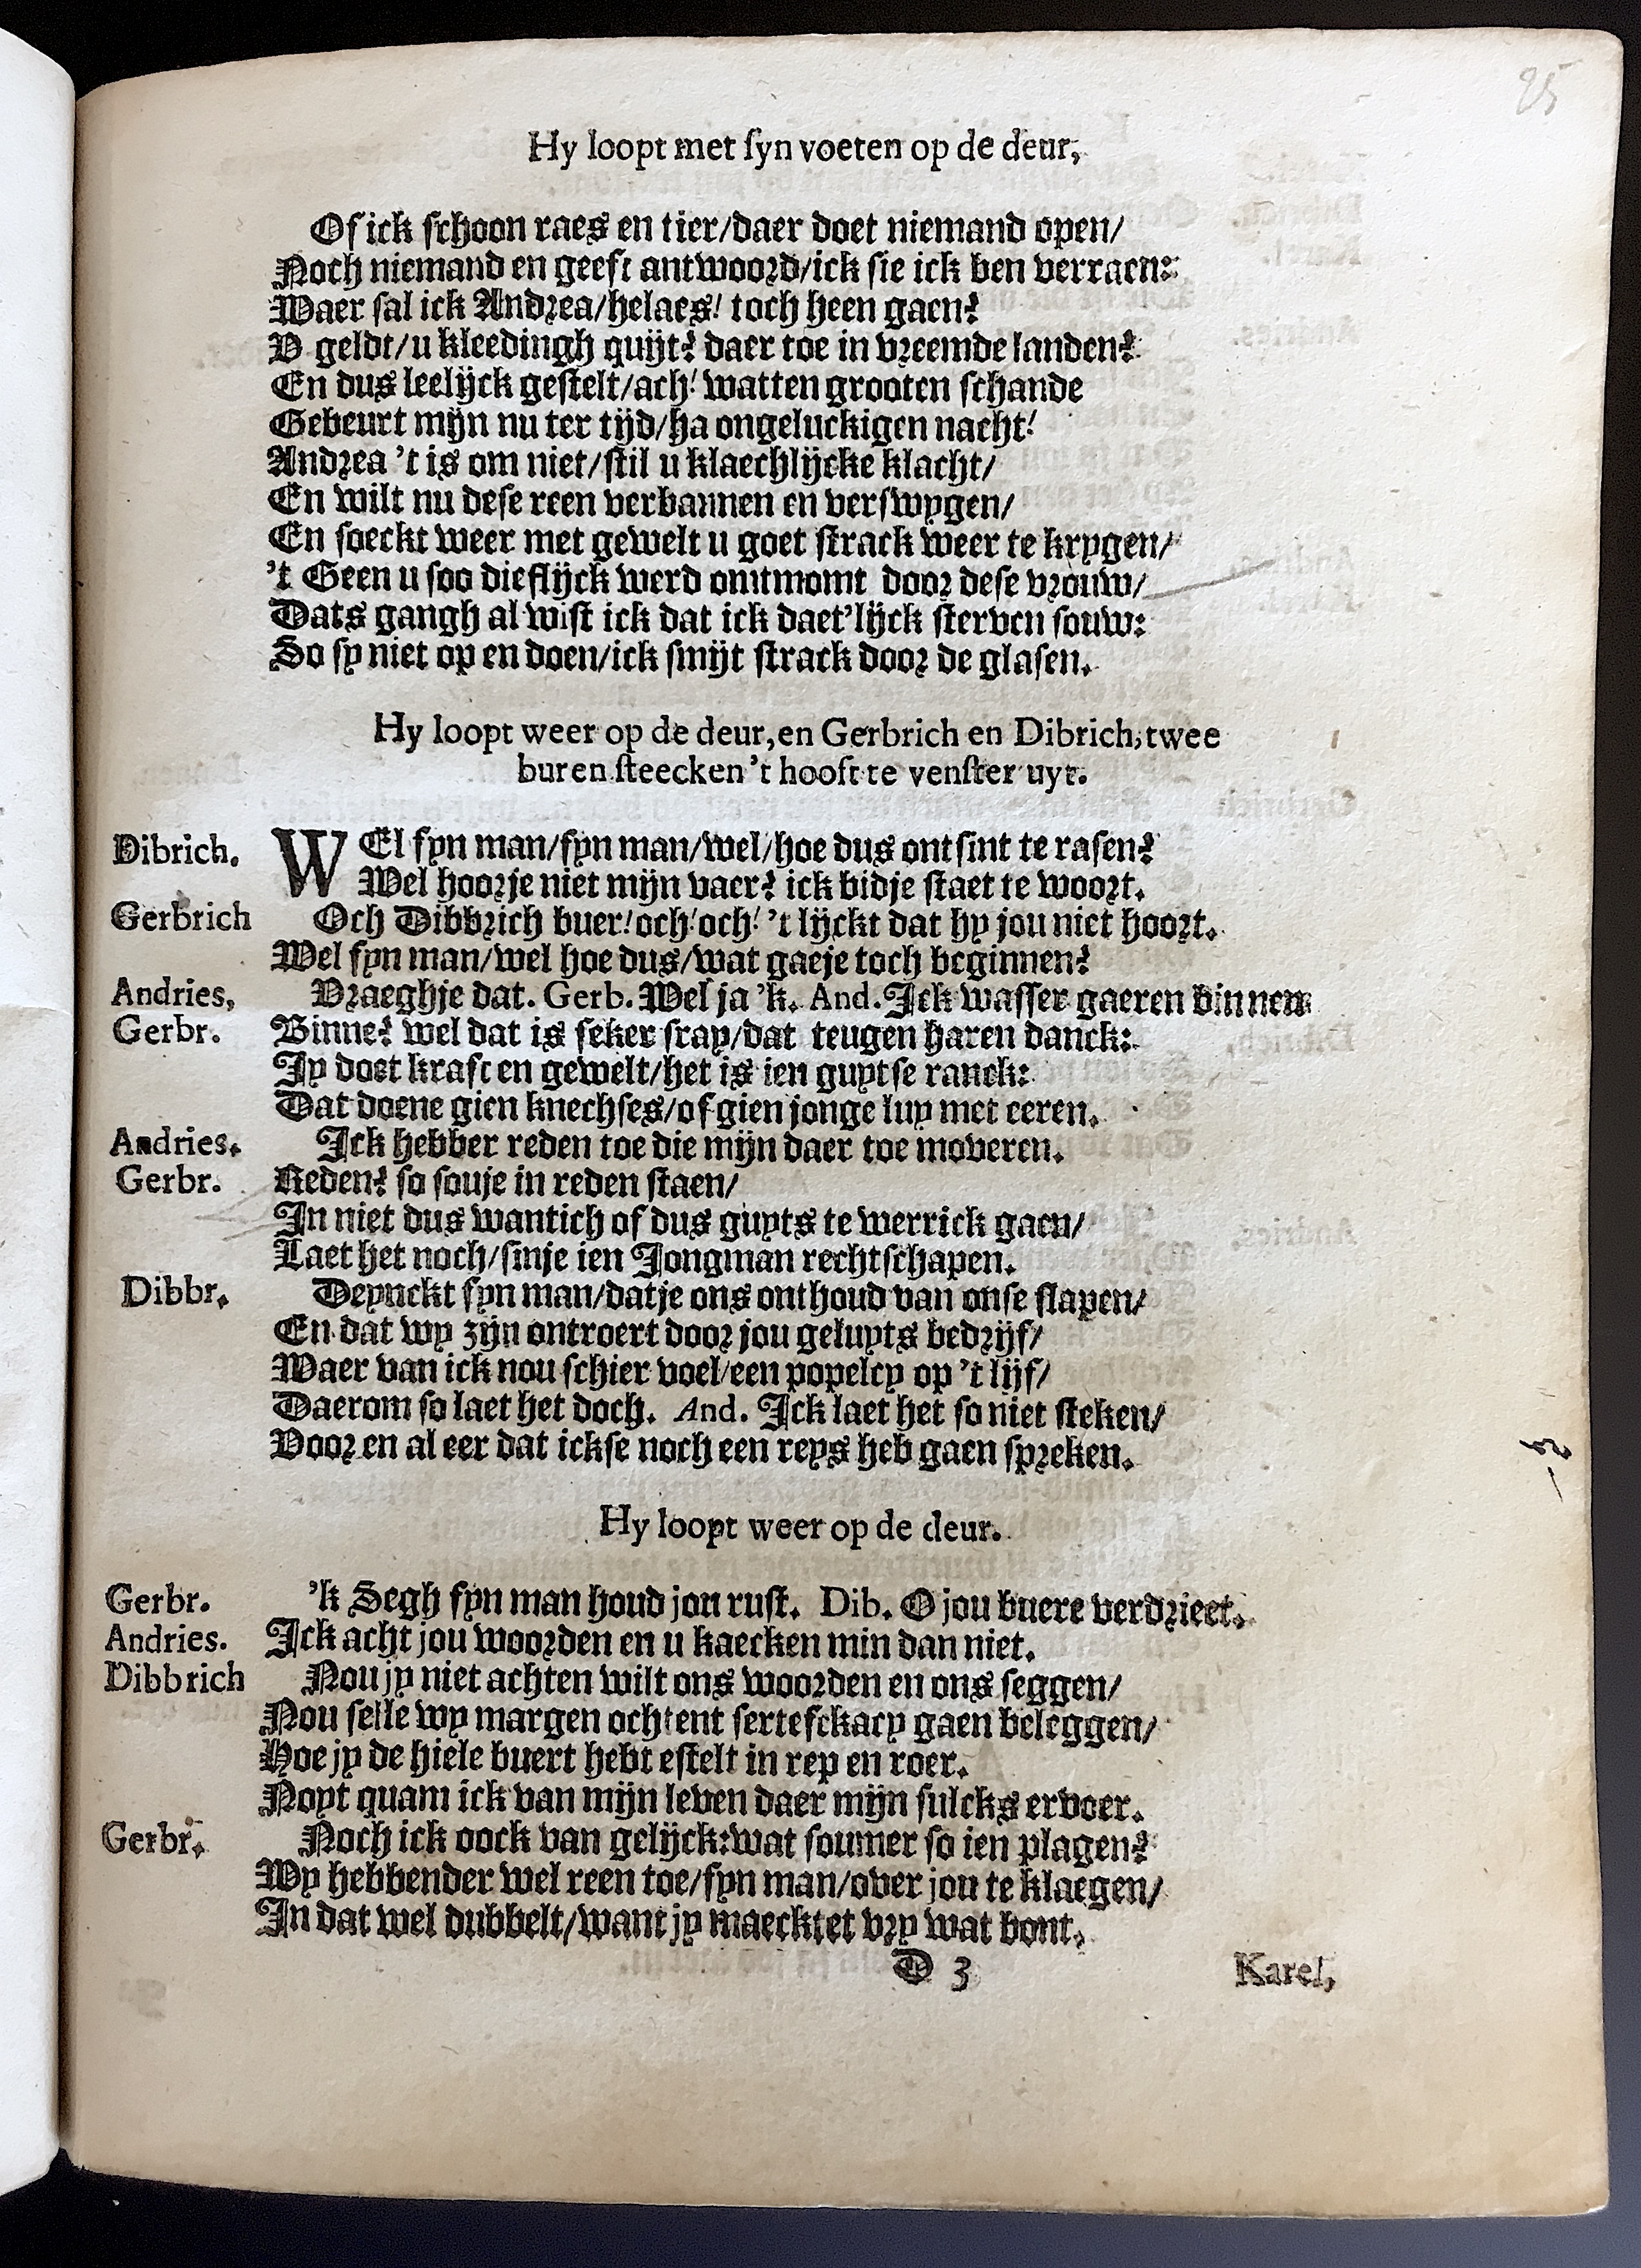 25
Hy loopt met syn voeten op de deur,
Of ick schoon raes en tier/daer doet niemand open/
Noch niemand en geeft antwoord/ick sie ick ben verraen:
Waer sal ick Andrea/helaes! toch heen gaen?
V geldt/u kleedingh quijt? daer toe in vreemde landen?
En dus leelijck gestelt/ach! watten grooten schande
Gebeurt mijn nu ter tijd/ha ongeluckigen nacht!
Andrea 't is om niet/stil u klaechlijcke klacht/
En wilt nu dese reen verbannen en verswygen/
En soeckt weer met gewelt u goet strack weer te krygen/
't Geen u soo dieflijck werd ontmomt door dese vrouw/
Dats gangh al wist ick dat ick daet'lijck sterven souw:
So sy niet op en doen/ick smijt strack door de glasen.
Hy loopt weer op de deur,en Gerbrich en Dibrich,twee
buren steecken 't hooft te venster uyt.
Dibrich. WEl fyn man/fyn man/wel/hoe dus ontsint te rasen?
Wel hoorje niet mijn vaer? ick bidje staet te woort.
Gerbrich Och Dibbrich buer!och!och! 't lijckt dat hy jou niet hoort.
Wel fyn man/wel hoe dus/wat gaeje toch beginnen?
Andries, Vraeghje dat. Gerb. Wel ja 'k. And. Ick wasser gaeren binnen
Gerbr. Binne? wel dat is seker fray/dat teugen haren danck:
Jy doet kraft en gewelt/het is ien guytse ranck:
Dat doene gien knechses/of gien jonge luy met eeren.
Andries. Ick hebber reden toe die mijn daer toe moveren.
Gerbr. Reden? so souje in reden staen/
In niet dus wantich of dus guyts te werrick gaen/
Laet het noch/sinje ien Jongman rechtschapen.
Dibbr. Deynckt fyn man/datje ons onthoud van onse slapen/
En dat wy zijn ontroert door jou geluyts bedrijf/
Waer van ick nou schier voel/een popelcy op 't lijf/
Daerom so laet het doch. And. Ick laet het so niet steken/
Voor en al eer dat ickse noch een reys heb gaen spreken.
Hy loopt weer op de deur.
Gerbr. 'k Segh fyn man houd jou rust. Dib. O jou buere verdrieet.
Andries. Ick acht jou woorden en u kaecken min dan niet.
Dibbrich Nou jy niet achten wilt ons woorden en ons seggen/
Nou selle wy margen ochtent sertefckacy gaen beleggen/
Hoe jy de hiele buert hebt estelt in rep en roer.
Noyt quam ick van mijn leven daer mijn sulcks ervoer.
Gerbr. Noch ick oock van gelijck:wat soumer so ien plagen?
Wy hebbender wel reen toe/fyn man/over jou te klaegen/
In dat wel dubbelt/want jy maecktet vry wat bont.
D 3
Karel,